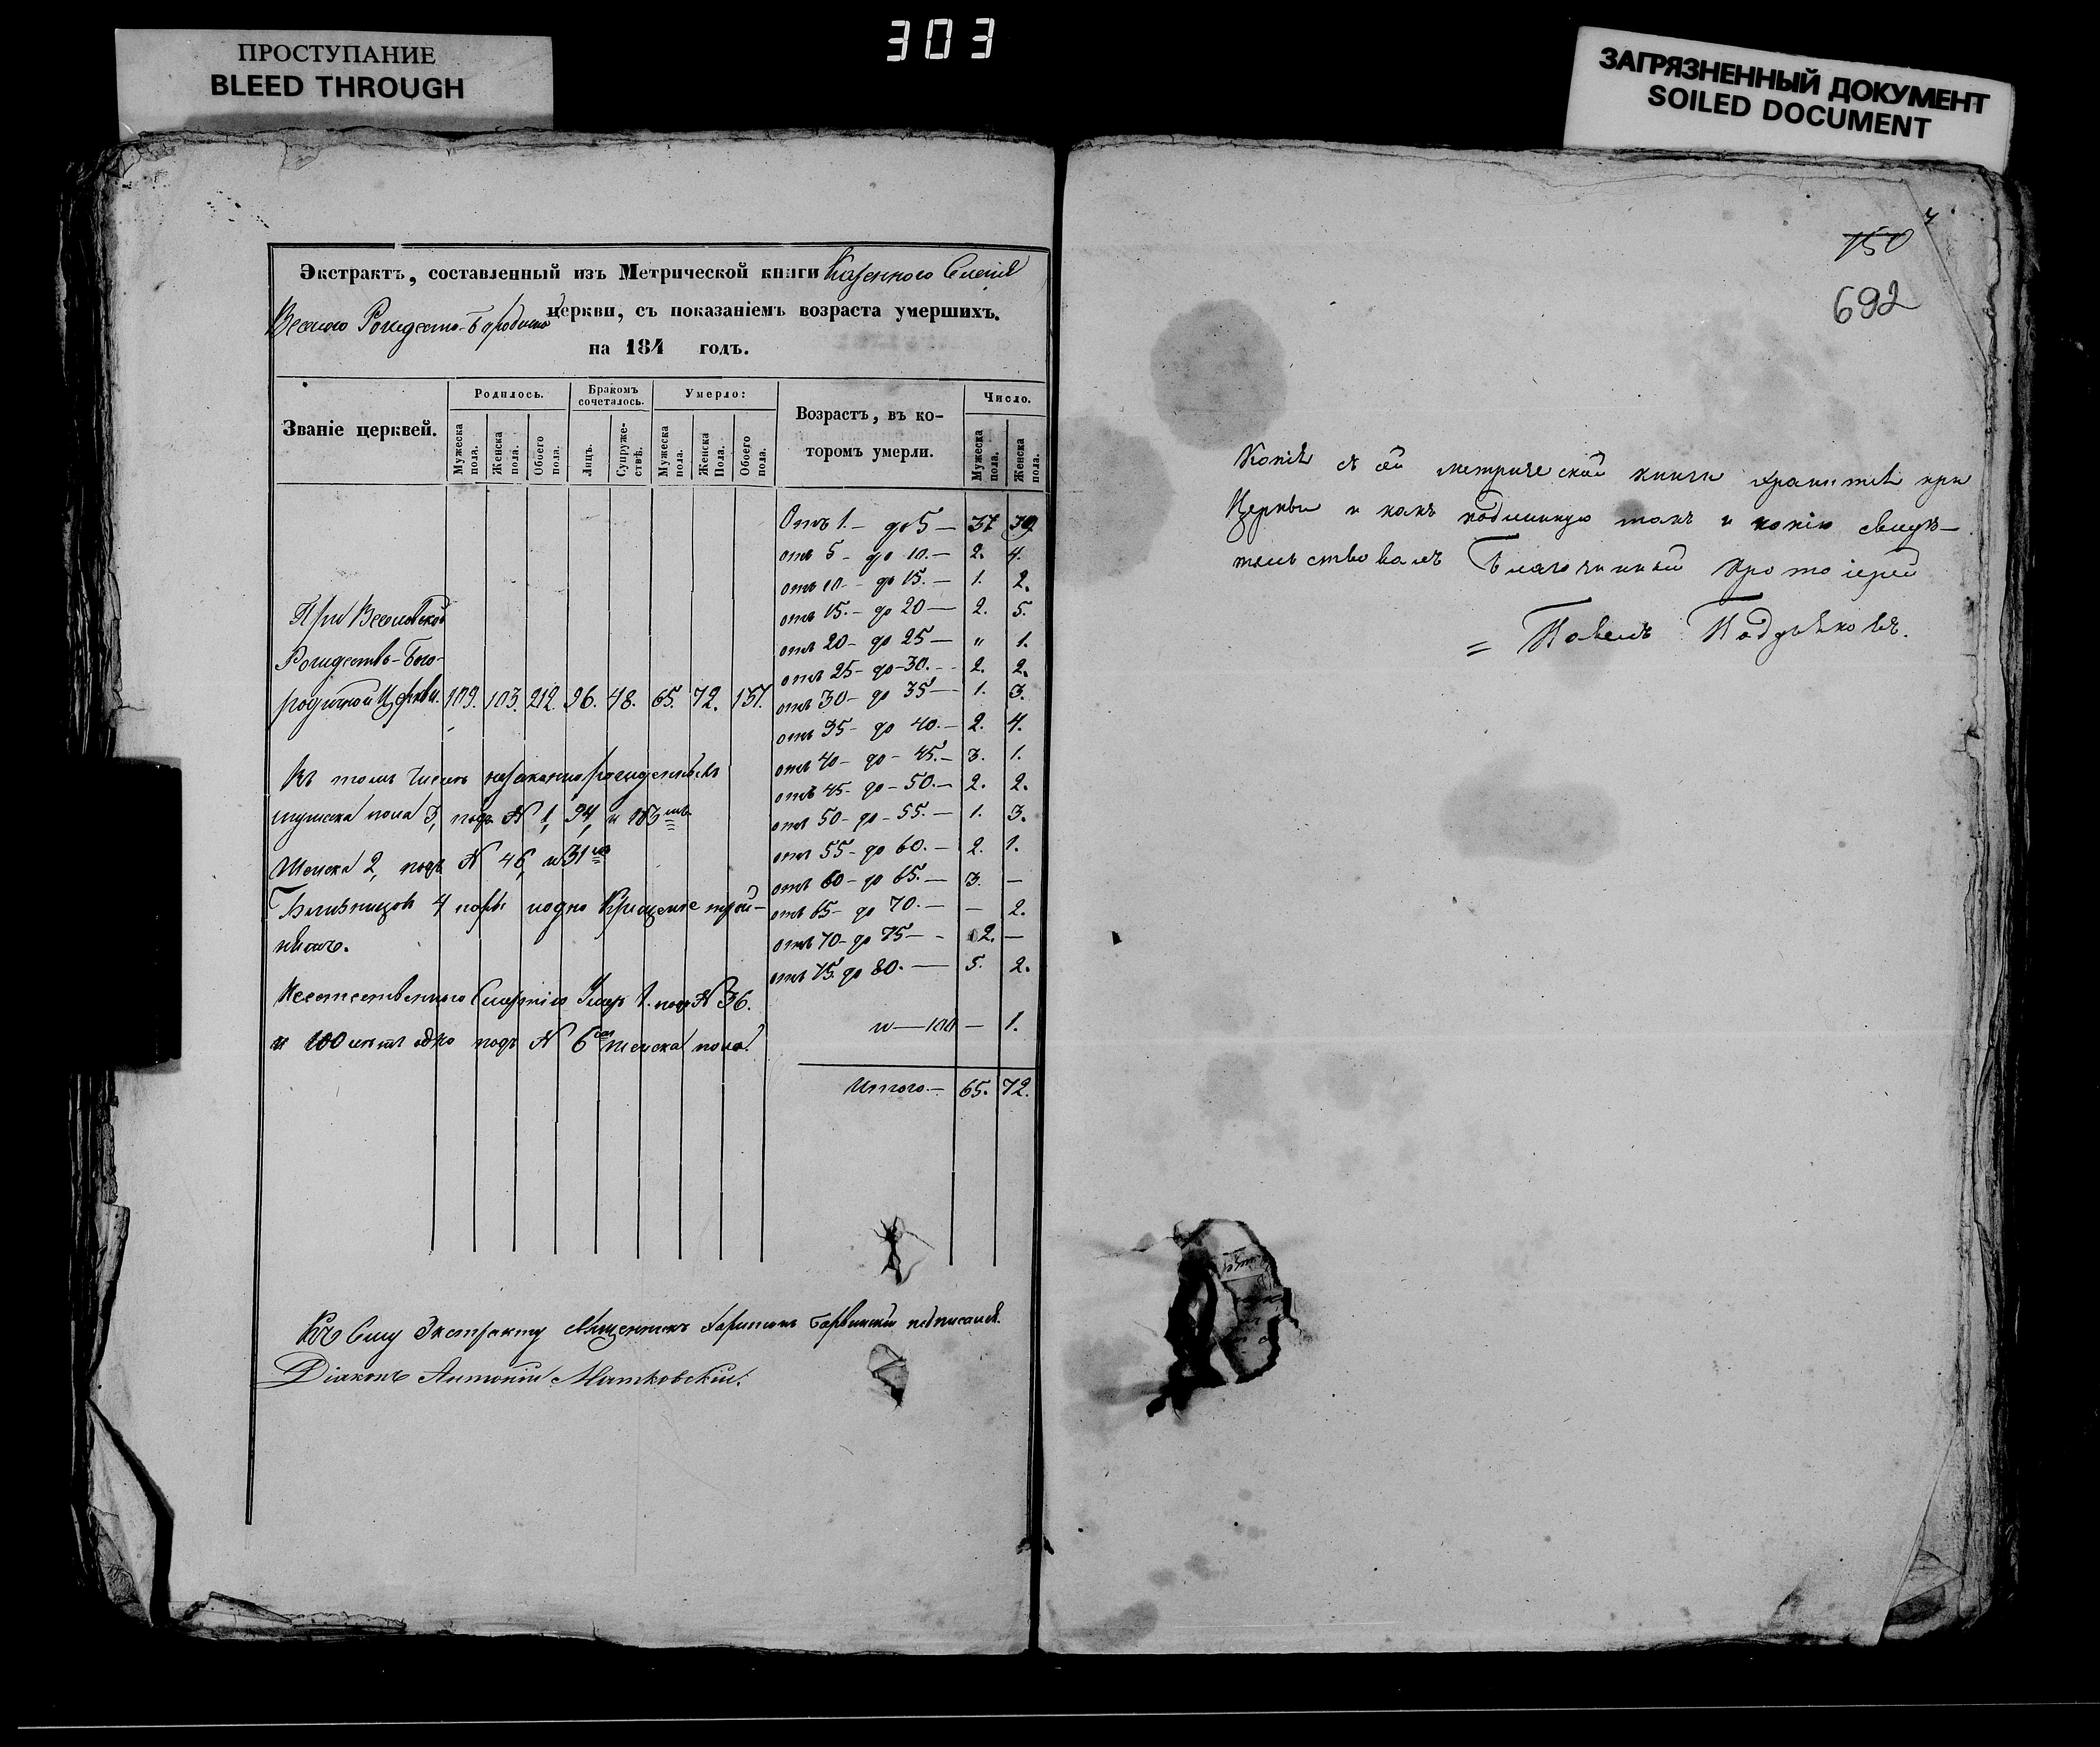 303
ПРОСТУПАНИЕ
BLEED THROUGH
ЗАГРЯЗНЕННЫЙ ДОКУМЕНТ
SOILED DOCUMENT
Экстрактъ, составленный изъ Метрической книги Казенного
Рождество-
церкви, съ показаніемъ возраста умершихъ.
на 184 годъ.
Званіе церквей.
Родилось.
Мужеска пола.
Женска пола.
Обоего пола.
Бракомъ сочеталось.
Лицъ.
Супружествъ.
Умерло:
Мужеска пола.
Женска Пола.
Обоего пола.
Возрастъ, въ которомъ умерли.
Число.
Мужеска пола.
Женска пола.
При
Рождество-Бого-
родичной Церкви. 109. 103. 212. 96. 48. 65. 72. 137.
Въ томъ числѣ незаконнорожденныхъ
мужеска пола 3, подъ N 1, 94, и 103
Женска 2, подъ N 46, и 31
Близнецовъ 4 пары
Неестественного Смертію Умер 1. подъ N 36.
и 100 лѣтъ одно подъ N 6 женска пола.
Отъ 1. — до 5 — 37 39.
отъ 5 — до 10. — 2. 4.
отъ 10 — до 15. — 1. 2.
отъ 15. — до 20 — 2. 5.
отъ 20 — до 25 — " 1.
отъ 25 — до 30. — 2. 2.
отъ 30 — до 35 — 1. 3.
отъ 35 — до 40. — 2. 4.
отъ 40 — до — 45. — 3. 1.
отъ 45 — до — 50. — 2. 2.
отъ 50 — до — 55. — 1. 3.
отъ 55 — до 60. — 2. 1.
отъ 60 — до 65. — 3. —
отъ 65 — до 70. — — 2.
отъ 70 — до 75 — 2. —
отъ 75. до 80. — 5. 2.
и — 100 — 1.
Итого. — 65. 72.
Къ Сему Экстракту Священникъ Харитонъ Барвинскій подписался.
Діаконъ Антоній Матковскій.
150
692
Копія съ сей метрической книги хранится при
Церкви и какъ подлинную такъ и копію свидѣ-
тельствовалъ Благочинный Протоіерей
= Павелъ